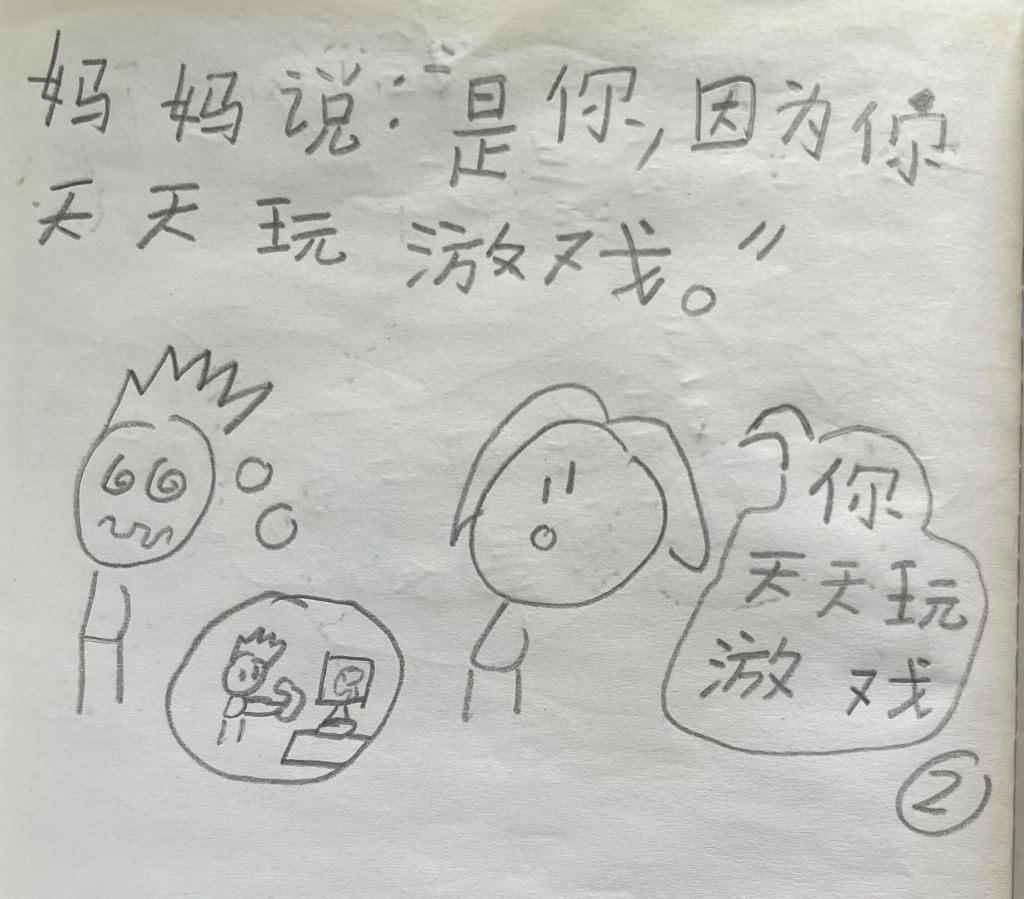 妈妈说:“是你,因为你
天天玩游戏。”
你
天天玩
游戏
②